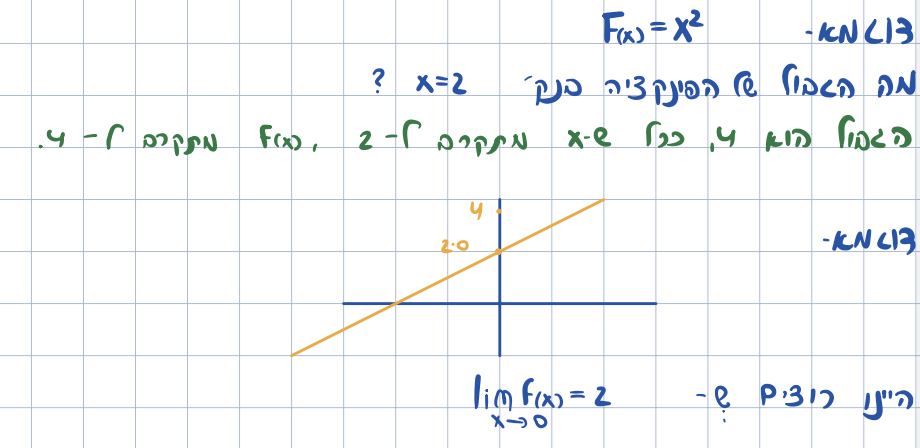 דוגמא- F(x) = x²
מה הגבול של הפינקציה בנק׳ x=2 ?
הגבול הוא 4, ככל ש-x מתקרב ל-2 , f(x) מתקרב ל-4.
4
דוגמא-
2.0
היינו רוצים ש-
lim f(x) = 2
x→0